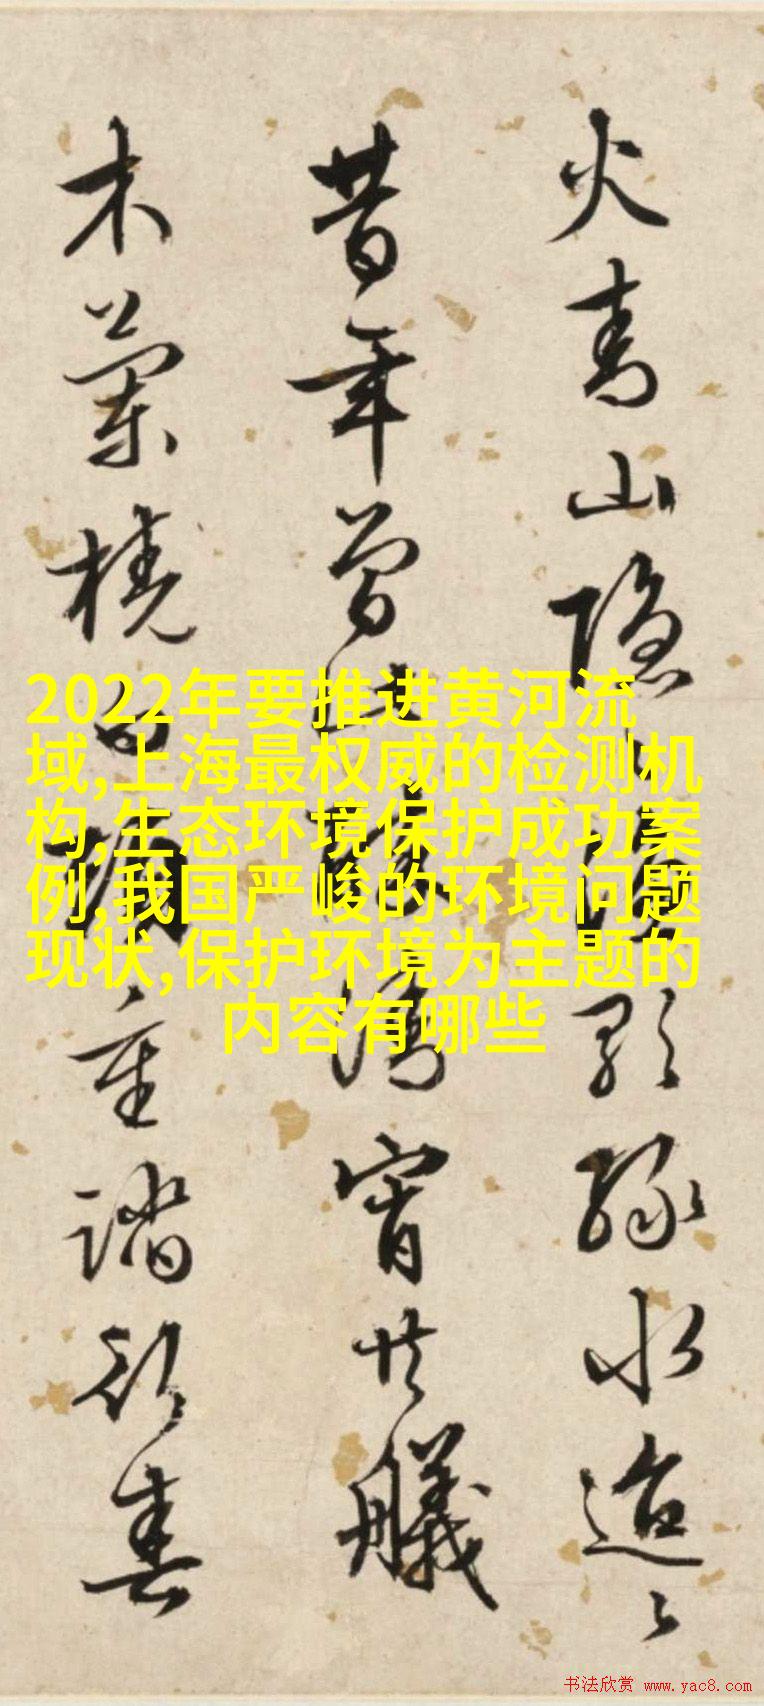 火青山隐
緑水迢〻
昔年曾
宵共艤
木蘭橈
重踏
春
2022年要推进黄河流
域,上海最权威的检测机
构,生态环境保护成功案
例,我国严峻的环境问题
现状,保护环境为主题的
内容有哪些
书法欣赏 www.yac8.com